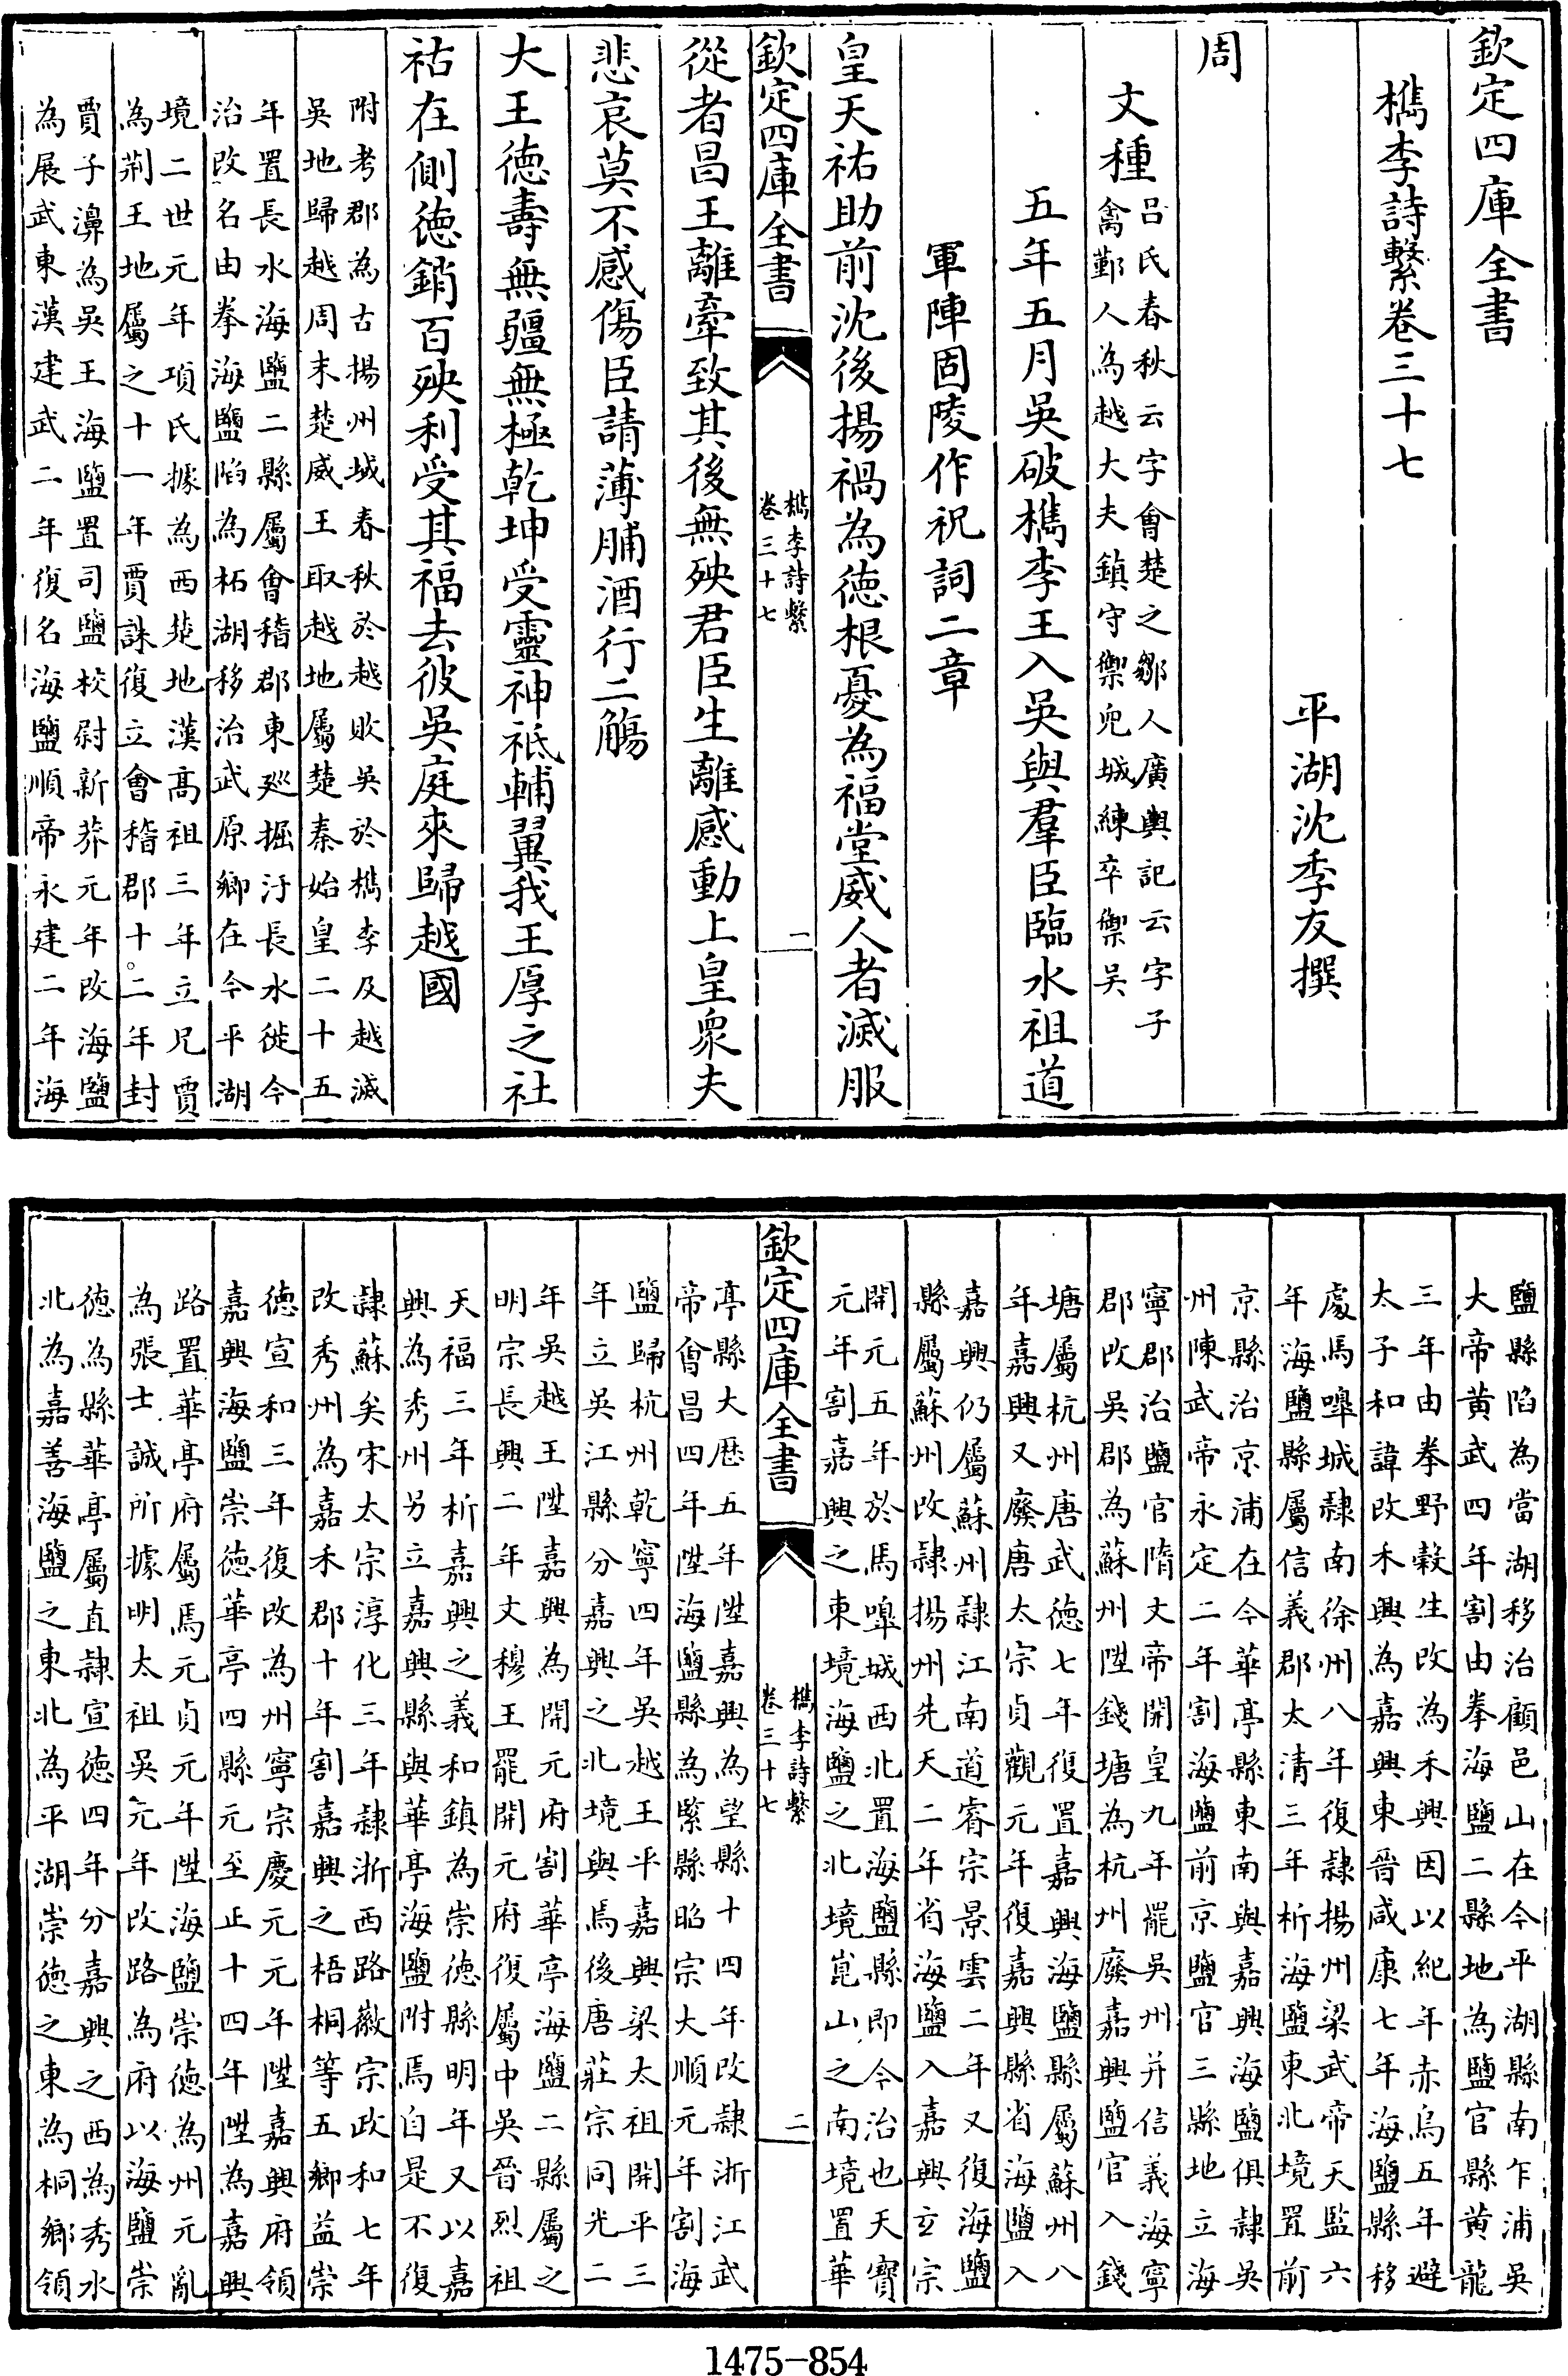 欽定四庫全書
檇李詩繫卷三十七
平湖沈季友撰
周
文種
吕氏春秋云字㑹楚之鄒人廣輿記云字子
禽鄞人為越大夫鎮守禦兒城練卒禦吴
五年五月吳破檇李王入吳與羣臣臨水祖道
軍陣固陵作祝詞二章
皇天祐助前沈後揚禍為徳根憂為福堂威人者滅服
欽定四庫全書
檇李詩繫
卷三十七
一
從者昌王離牽致其後無殃君臣生離感動上皇衆夫
悲哀莫不感傷臣請薄脯酒行二觴
大王徳壽無疆無極乾坤受靈神祗輔翼我王厚之社
祐在側徳銷百殃利受其福去彼吳庭來歸越國
附考郡為古揚州城春秋於越敗吳於檇李及越滅
吳地歸越周末楚威王取越地屬楚秦始皇二十五
年置長水海鹽二縣屬㑹稽郡東廵掘汙長水徙今
治改名由拳海鹽陷為柘湖移治武原鄉在今平湖
境二世元年項氏據為西楚地漢髙祖三年立兄賈
為荆王地屬之十一年賈誅復立㑹稽郡十二年封
賈子濞為吳王海鹽置司鹽校尉新莽元年改海鹽
為展武東漢建武二年復名海鹽順帝永建二年海
鹽縣陷為當湖移治顧邑山在今平湖縣南乍浦吳
大帝黄武四年割由拳海鹽二縣地為鹽官縣黄龍
三年由拳野榖生改為禾興因以紀年赤烏五年避
太子和諱改禾興為嘉興東晉咸康七年海鹽縣移
處馬嘷城隷南徐州八年復隷揚州梁武帝天監六
年海鹽縣屬信義郡太清三年析海鹽東北境置前
京縣治京浦在今華亭縣東南與嘉興海鹽俱隷吳
州陳武帝永定二年割海鹽前京鹽官三縣地立海
寧郡治鹽官隋文帝開皇九年罷吳州并信義海寧
郡改吳郡為蘇州陞錢塘為杭州廢嘉興鹽官入錢
塘屬杭州唐武徳七年復置嘉興海鹽縣屬蘇州八
年嘉興又廢唐太宗貞觀元年復嘉興縣省海鹽入
嘉興仍屬蘇州隷江南道睿宗景雲二年又復海鹽
縣屬蘇州改隷揚州先天二年省海鹽入嘉興玄宗
開元五年於馬嘷城西北置海鹽縣即今治也天寳
元年割嘉興之東境海鹽之北境崑山之南境置華
欽定四庫全書
檇李詩繫
卷三十七
二
亭縣大厯五年陞嘉興為望縣十四年改隷浙江武
帝㑹昌四年陞海鹽縣為緊縣昭宗大順元年割海
鹽歸杭州乾寧四年吳越王平嘉興梁太祖開平三
年立吳江縣分嘉興之北境與焉後唐莊宗同光二
年吳越王陞嘉興為開元府割華亭海鹽二縣屬之
明宗長興二年文穆王罷開元府復屬中吳晉烈祖
天福三年析嘉興之義和鎮為崇徳縣明年又以嘉
興為秀州另立嘉興縣與華亭海鹽附焉自是不復
隷蘇矣宋太宗淳化三年隷浙西路徽宗政和七年
改秀州為嘉禾郡十年割嘉興之梧桐等五鄉益崇
徳宣和三年復改為州寧宗慶元元年陞嘉興府領
嘉興海鹽崇徳華亭四縣元至正十四年陞為嘉興
路置華亭府屬焉元貞元年陞海鹽崇徳為州元亂
為張士誠所據明太祖吳元年改路為府以海鹽崇
徳為縣華亭屬直隷宣徳四年分嘉興之西為秀水
北為嘉善海鹽之東北為平湖崇徳之東為桐鄉領
1475-854